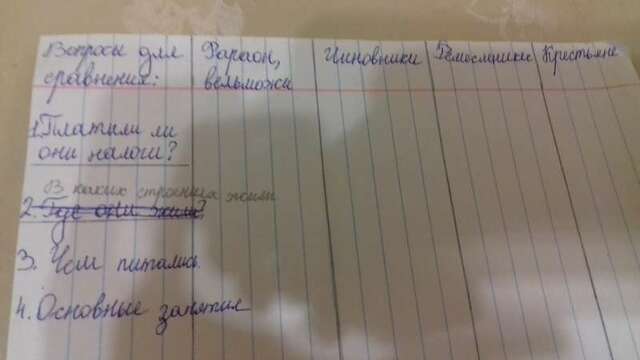 Вопросы для Фараон, Чиновники Ремесленники Крестьяне
сравнения: вельможи
1. Платили ли
они налоги?
В каких строениях жили
2. Где они жили?
3. Чем питались.
4. Основные занятия